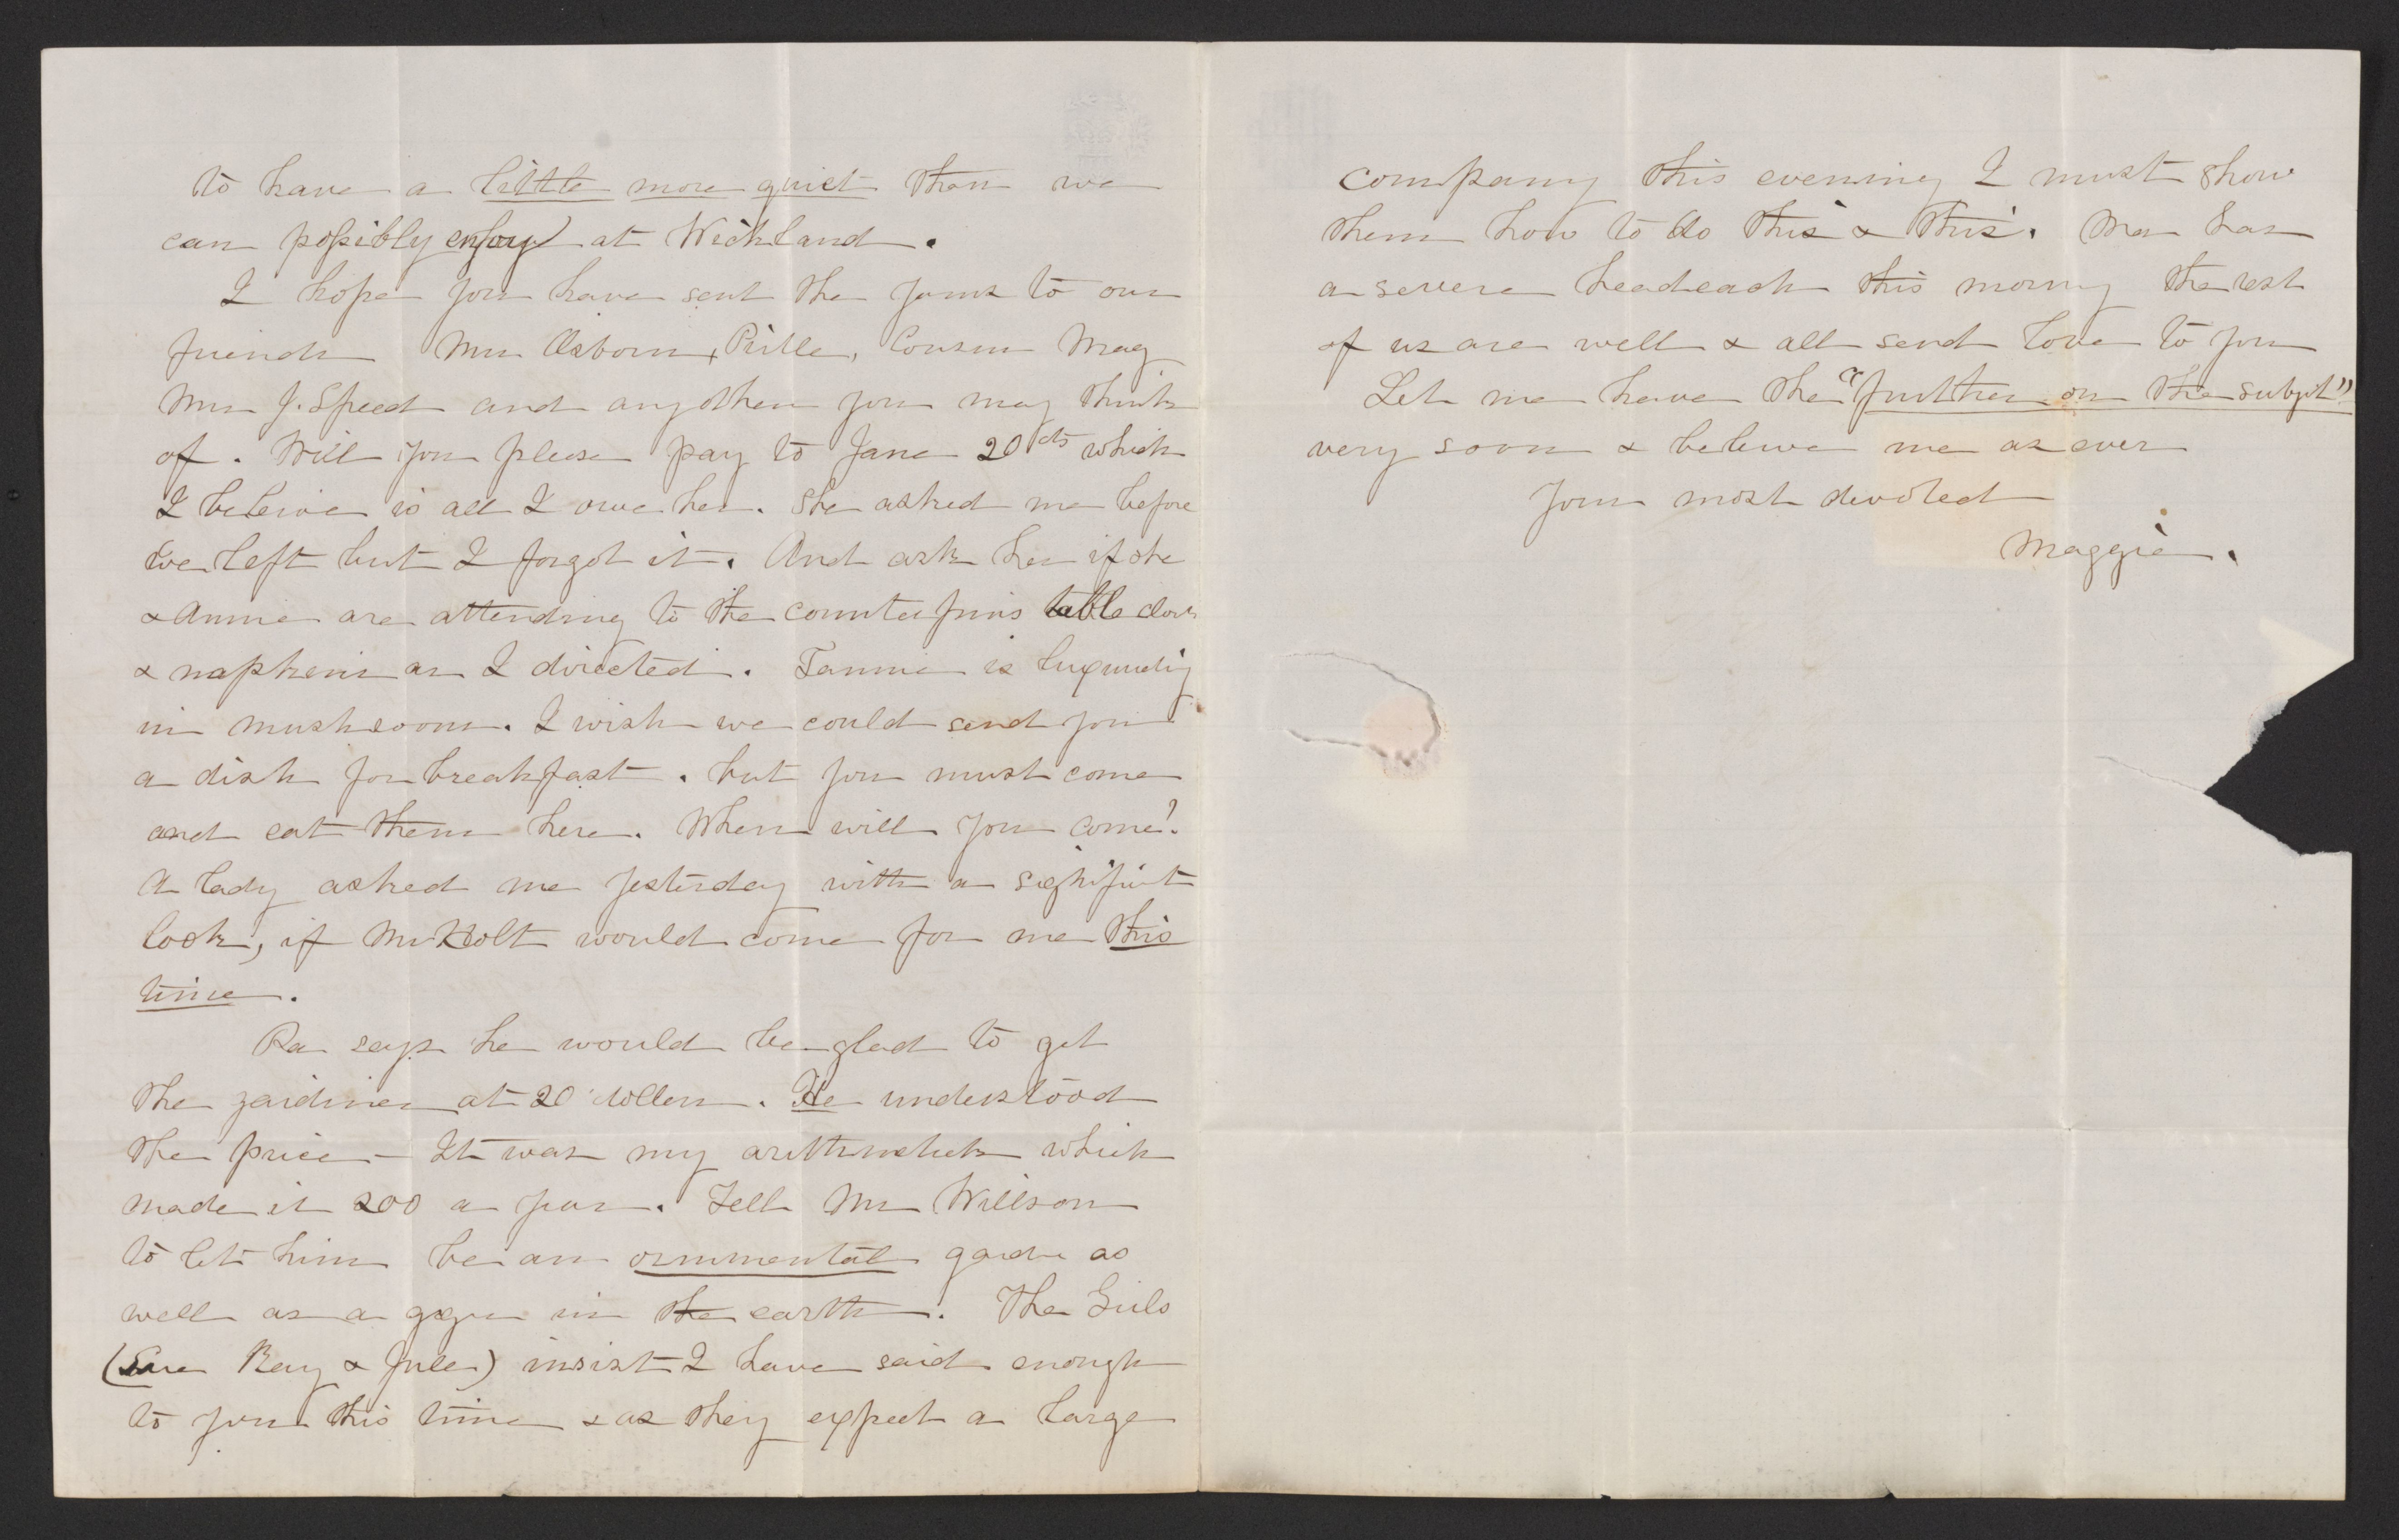 to have a little more quiet than we
can possibly enjoy at Wickland.
I hope you have sent the jams to our
friends Mrs Osborn, Pirtle, Cousin Mag
Mrs J. Speed and any other you may think
of. Will you please pay to Jane 20 cts which
I beleive is all I owe her. She asked me before
we left but I forgot it. And ask her if she
& Annie are attending to the counterpins table cloths
& napkins as I directed. Fannie is luxuriating
in mushrooms. I wish we could send you
a dish for breakfast. but you must come
and eat them here. When will you come?
A lady asked me yesterday with a significant
look, if Mr Holt would come for me this
time.
Pa says he would be glad to get
the gardiner at 20 dollars. He understood
the price — It was my arithmetick which
made it 200 a year. Tell Mr Willson
to let him be an ornmental gardner as
well as a in the earth. The Girls
(Sue Ray & Jule) insist I have said enough
to you this time & as they expect a large
company this evening I must show
them how to do this & this. Ma has
a severe headeach this morning the rest
of us are well & all send love to you
Let me have the "further on the subject"
very soon & beleive me as ever
Your most devoted
Maggie.